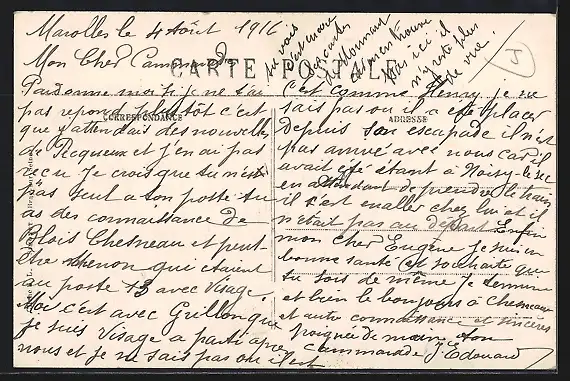 Marolles le 4 Août 1916
Mon Cher Camarade
CARTE POSTALE
CORRESPONDANCE
ADRESSE
Pardonne moi si je ne t'ai
pas repond plutôt c'est
que j'attendais des nouvelles
de Picqueux et j'en ai pas
recu Je crois que tu n'est
pas seul a ton poste tu
as des connaissance de
Blois Chesneau et peut-
être que etaient
au poste 13 avec Visage.
Moi c'est avec Grellon que
je suis Visage a parti apre
nous et je ne sais pas ou il est
c'est comme Henay je ne
sais pas ou il a été placer
depuis son escapade il n'est
pas arrivé avec nous car il
avait été étant à Noisy-le-sec
en attendant de prendre le train
il s'est en aller chez lui et il
n'etait pas au depart Enfin
mon cher Eugène je suis en
bonne santé et souhaite que
tu sois de même Je termine
et bien le bonjours à Chesneau
et autre connaissance et sincères
poignée de mains ton
cammarade J. Edouard
tu vois
c'est
cartes
on
ici il
n'y reste plus
de vue.
J